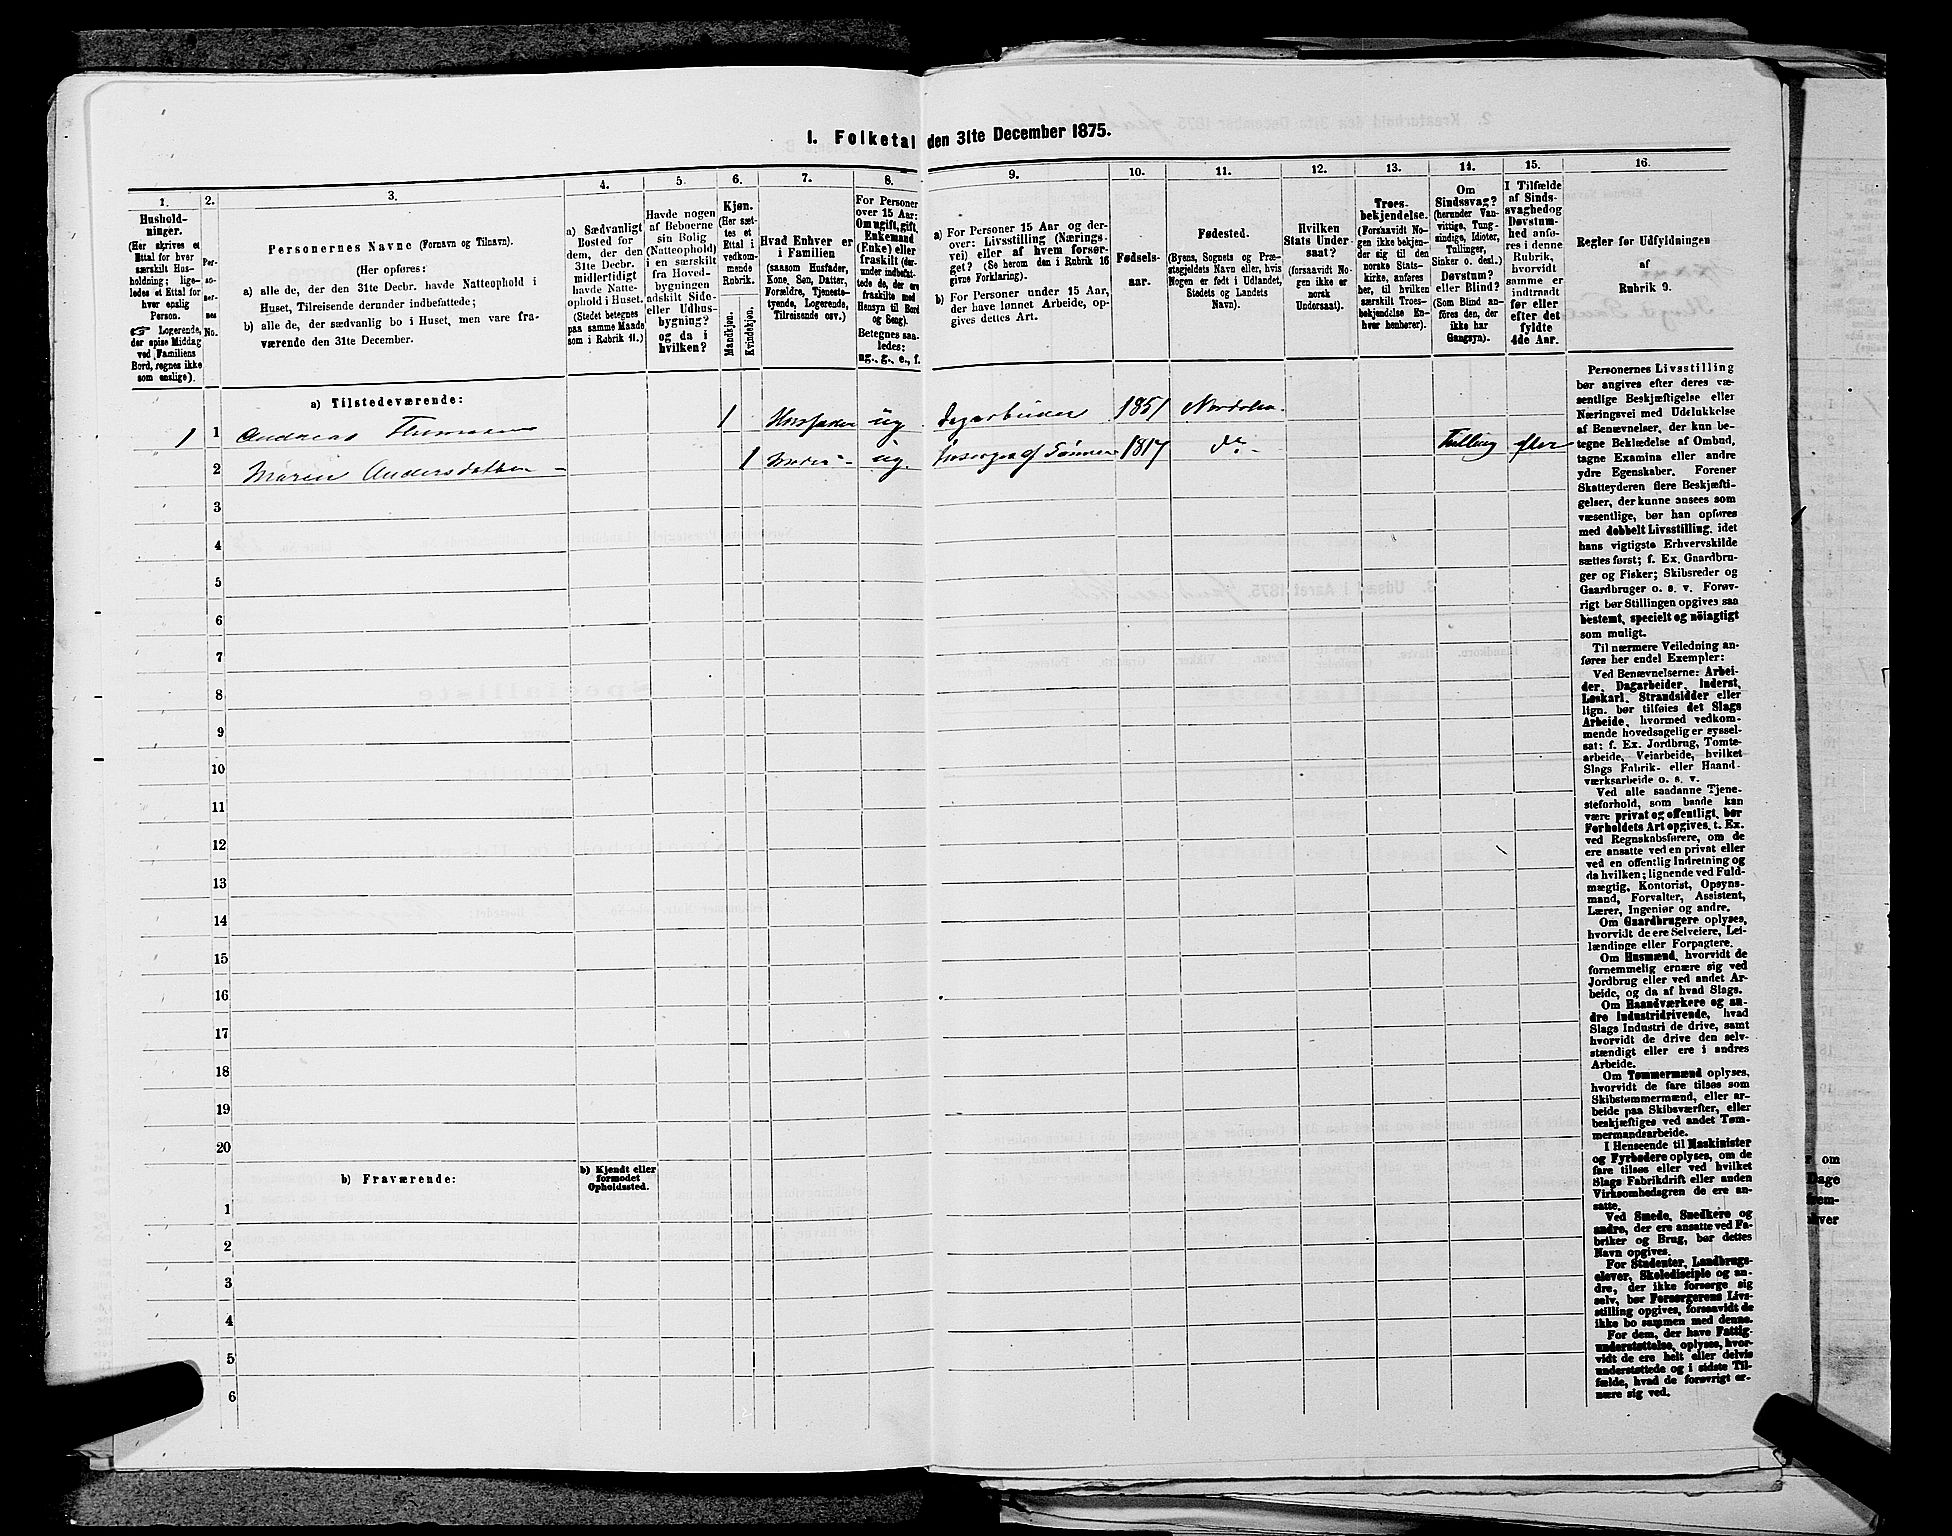 I. Folketal den 31te December 1875.
1.
2.
3.
4.
5.
6.
7.
8.
9.
10.
11.
12.
13.
14.
15.
16.
Hushold-
ninger.
(Her skrives et
Ettal for hver
særskilt Hus-
holdning; lige-
ledes et Ettal for
hver enslig
Person.
☞ Logerende,
der spise Middag
ved Familiens
Bord, regnes ikke
som enslige).
Per-
so-
ner-
nes
No.
Personernes Navne (Fornavn og Tilnavn).
(Her opføres:
a) alle de, der den 31te Decbr. havde Natteophold i
Huset, Tilreisende derunder indbefattede;
b) alle de, der sædvanlig bo i Huset, men vare fra-
værende den 31te December.
a) Sædvanligt
Bosted for
dem, der den
31te Decbr.
midlertidigt
havde Natte-
ophold i Huset.
(Stedet betegnes
paa samme Maade
som i Rubrik 11.)
Havde nogen
af Beboerne
sin Bolig
(Natteophold)
i en særskilt
fra Hoved-
bygningen
adskilt Side-
eller Udhus-
bygning?
og da i
hvilken?
Kjøn.
(Her sæt-
tes et
Ettal i
vedkom-
mende
Rubrik.
Mandkjøn.
Kvindekjøn.
Hvad Enhver er
i Familien
(saasom Husfader,
Kone, Søn, Datter,
Forældre, Tjeneste-
tyende, Logerende,
Tilreisende osv.)
For Personer
over 15 Aar:
Om ugift, gift,
Enkemand
(Enke) eller
fraskilt (der-
under indbefat-
tede de, der ere
fraskilte med
Hensyn til Bord
og Seng).
Betegnes saa-
ledes:
ug., g., e., f.
a) For Personer 15 Aar og der-
over: Livsstilling (Nærings-
vei) eller af hvem forsør-
get? (Se herom den i Rubrik 16
givne Forklaring).
b) For Personer under 15 Aar,
der have lønnet Arbeide, op-
gives dettes Art.
Fødsels-
aar.
Fødested.
(Byens, Sognets og Præ-
stegjeldets Navn eller, hvis
Nogen er født i Udlandet,
Stedets og Landets
Navn).
Hvilken
Stats Under-
saat?
(forsaavidt No-
gen ikke er
norsk
Undersaat).
Troes-
bekjendelse.
(Forsaavidt No-
gen ikke bekjen-
der sig til den
norske Stats-
kirke, anføres
her, til hvilken
særskilt Troes-
bekjendelse En-
hver henhører).
Om
Sindssvag?
(herunder Van-
vittige, Tung-
sindige, Idioter,
Tullinger,
Sinker o. desl.)
Døvstum?
eller Blind?
(Som Blind an-
føres den, der
ikke har
Gangsyn).
I Tilfælde
af Sinds-
svaghed og
Døvstum-
hed anfø-
res i denne
Rubrik,
hvorvidt
samme er
indtraadt
før eller
efter det
fyldte
4de Aar.
Regler for Udfyldningen
af
Rubrik 9.
a) Tilstedeværende:
1 1 Andreas Thomasen 1 Husfader ug. Dagarbeider 1851
2 Maren Andersdatter 1 Moder ug. Forsørges af Sønnen 1817 do Tulling efter
3
4
5
6
7
8
9
10
11
12
13
14
15
16
17
18
19
20
b) Fraværende:
b) Kjendt eller
formodet
Opholdssted.
1
2
3
4
5
6
Personernes Livsstilling
bør angives efter deres væ-
sentlige Beskjæftigelse eller
Næringsvei med Udelukkelse
af Benævnelser, der kun be-
tegne Beklædelse af Ombud,
tagne Examina eller andre
ydre Egenskaber. Forener
Skatteyderen flere Beskjæfti-
gelser, der kunne ansees som
væsentlige, bør han opføres
med dobbelt Livsstilling, idet
hans vigtigste Erhvervskilde
sættes først; f. Ex. Gaardbru-
ger og Fisker; Skibsreder og
Gaardbruger o. s. v. Forøv-
rigt bør Stillingen opgives saa
bestemt, specielt og nöiagtigt
som muligt.
Til nærmere Veiledning an-
føres her endel Exempler:
Ved Benævnelserne: Arbei-
der, Dagarbeider, Inderst,
Løskarl, Strandsidder eller
lign. bør tilføies det Slags
Arbeide, hvormed vedkom-
mende hovedsagelig er syssel-
sat; f. Ex. Jordbrug, Tomte-
arbeide, Veiarbeide, hvilket
Slags Fabrik- eller Haand-
værksarbeide o. s. v.
Ved alle saadanne Tjene-
steforhold, som baade kan
være privat og offentligt, bør
Forholdets Art opgives, t. Ex.
ved Regnskabsførere, om de
ere ansatte ved en privat eller
ved en offentlig Indretning og
da hvilken; lignende ved Fuld-
mægtig, Kontorist, Opsyns-
mand, Forvalter, Assistent,
Lærer, Ingeniør og andre.
Om Gaardbrugere oplyses,
hvorvidt de ere Selveiere, Lei-
lændinge eller Forpagtere.
Om Husmænd, hvorvidt de
fornemmelig ernære sig ved
Jordbrug eller ved andet Ar-
beide, og da af hvad Slags.
Om Haandværkere og an-
dre Industridrivende, hvad
Slags Industri de drive, samt
hvorvidt de drive den selv-
stændigt eller ere i andres
Arbeide.
Om Tømmermænd oplyses,
hvorvidt de fare tilsøs som
Skibstømmermænd, eller ar-
beide paa Skibsværfter, eller
beskjæftiges ved andet Tøm-
mermandsarbeide.
I Henseende til Maskinister
og Fyrbødere oplyses, om de
fare tilsøs eller ved hvilket
Slags Fabrikdrift eller anden
Virksomhedsgren de ere an-
satte.
Ved Smede, Snedkere og
andre, der ere ansatte ved Fa-
briker og Brug, bør dettes
Navn opgives.
For Studenter, Landbrugs-
elever, Skoledisciple og an-
dre, der ikke forsørge sig
selv, bør Forsørgerens Livs-
stilling opgives, forsaavidt de
ikke bo sammen med denne.
For dem, der have Fattig-
understøttelse, oplyses, hvor-
vidt de ere helt eller delvis
understøttede og i sidste Til-
fælde, hvad de forøvrigt er-
nære sig ved.